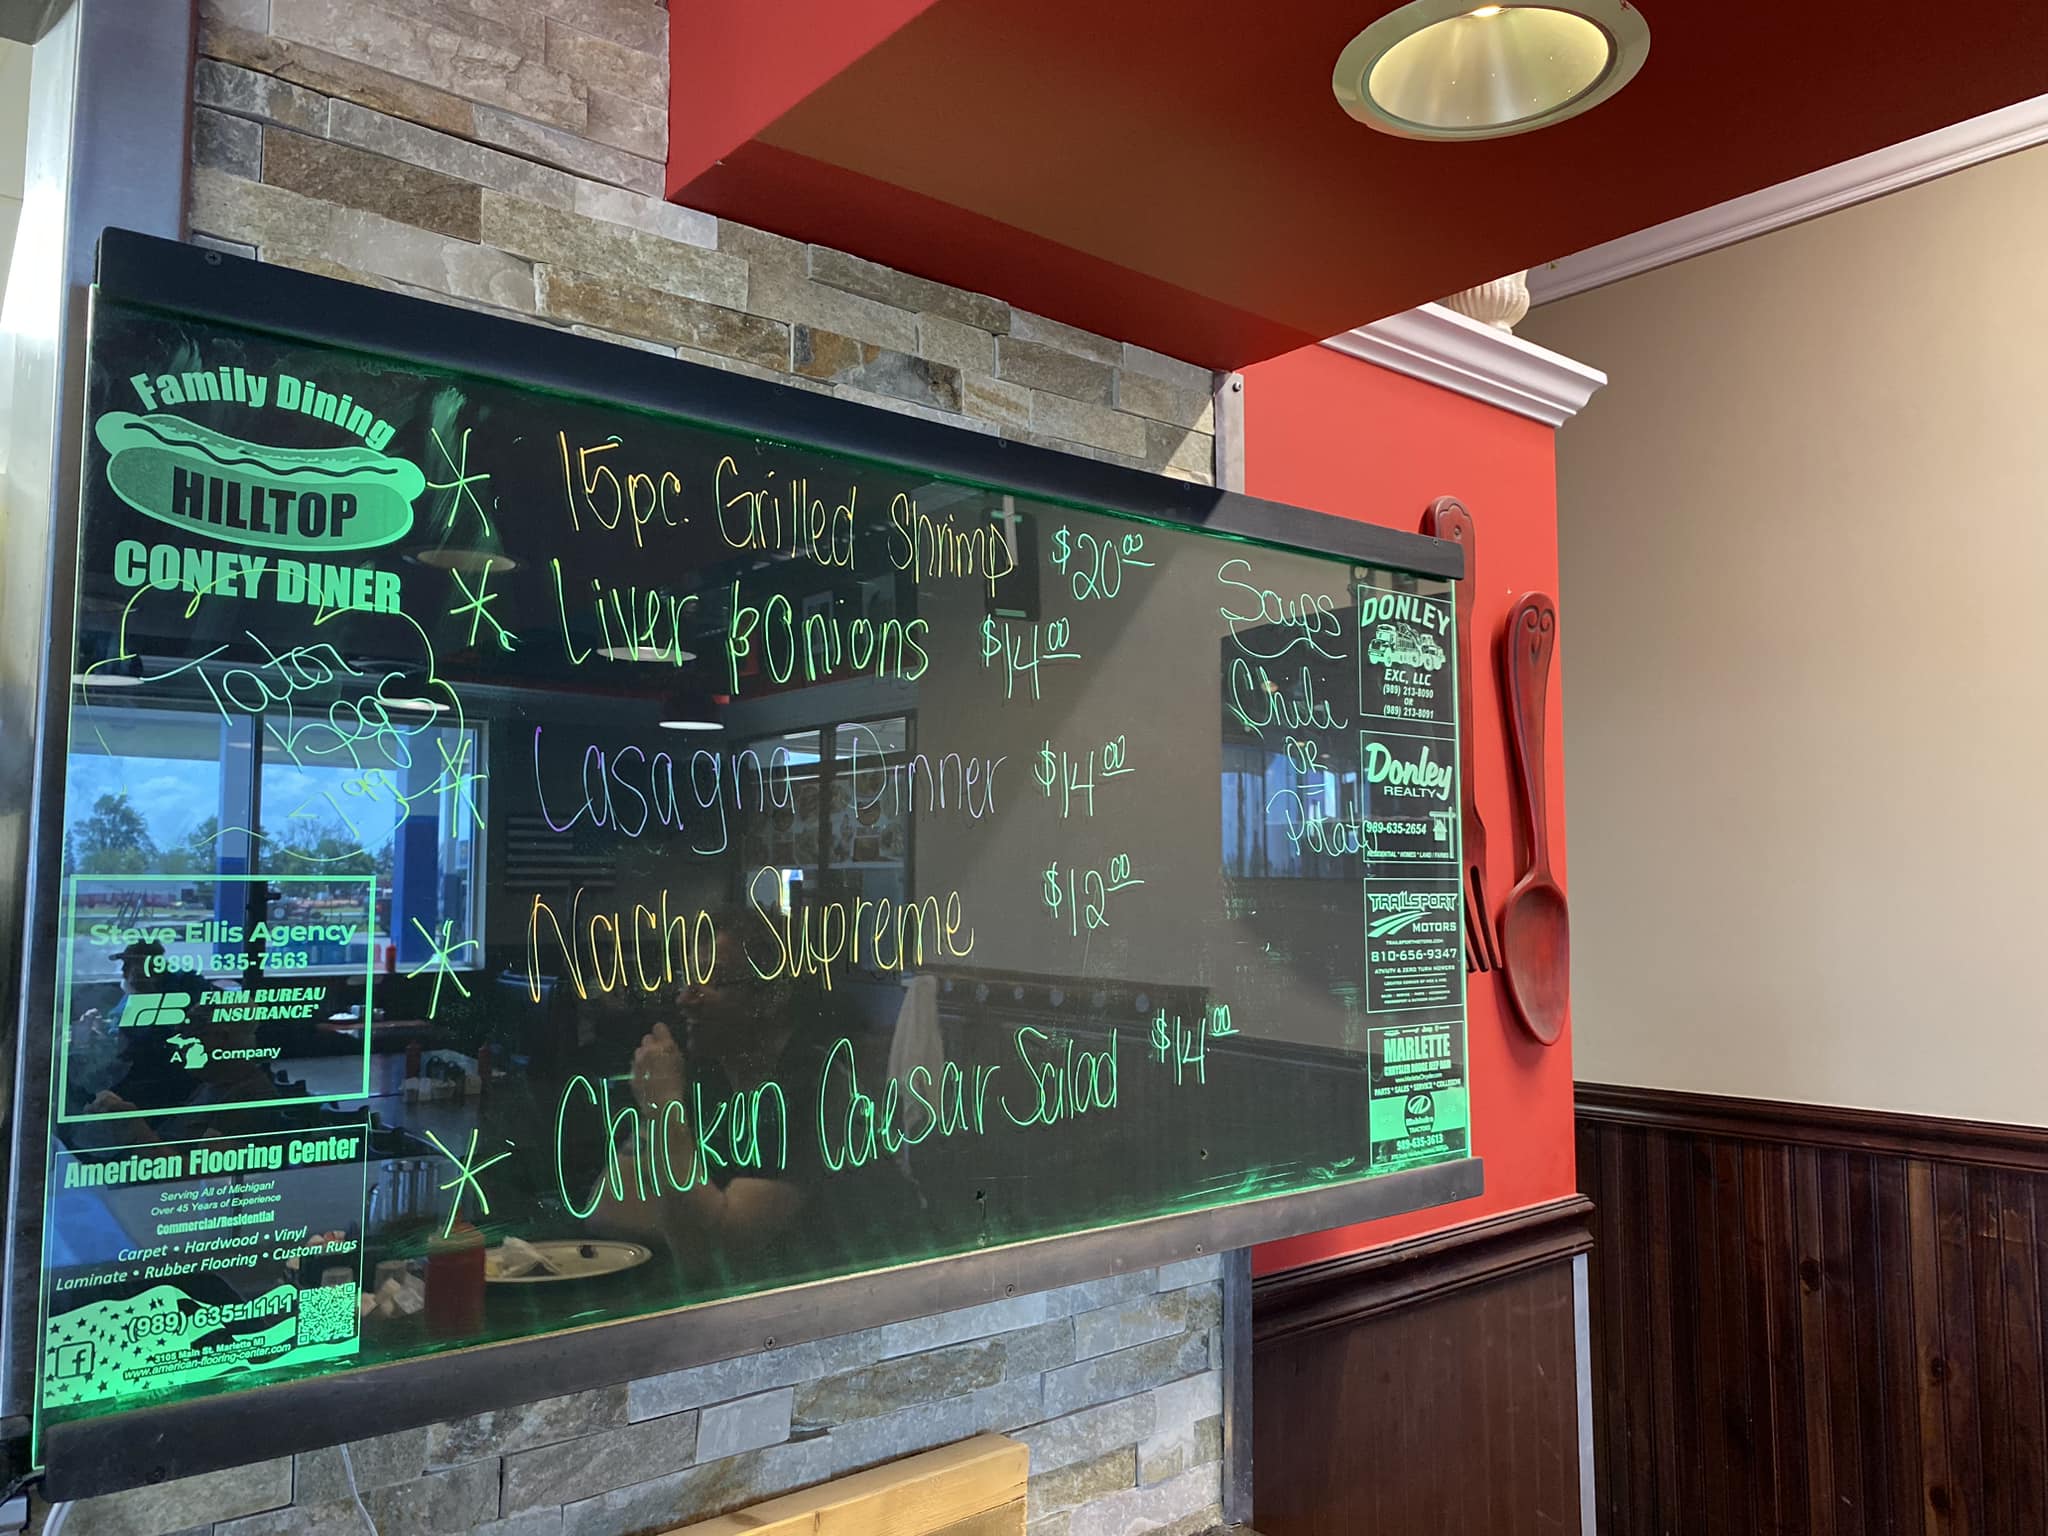 Family Dining
HILLTOP
CONEY DINER
Tator
Kegs
Steve Ellis Agency
(989) 635-7563
FB FARM BUREAU
INSURANCE®
A Company
American Flooring Center
Serving All of Michigan!
Over 45 Years of Experience
Commercial/Residential
Carpet • Hardwood • Vinyl
Laminate • Rubber Flooring • Custom Rugs
(989) 635-1111
3105 Main St. Marlette MI
www.american-flooring-center.com
15pc. Grilled Shrimp $20.00
Liver & Onions $14.00
Lasagna Dinner $14.00
Nacho Supreme $12.00
Chicken Caesar Salad $14.00
Soups
Chili
OR
Potato
DONLEY
EXC, LLC
(989) 213-8090
OR
(989) 213-8091
Donley
REALTY
989-635-2654
RESIDENTIAL * HOMES * LAND / FARMS
TRAILSPORT
MOTORS
TRAILSPORTMOTORS.COM
810-656-9347
ATV/UTV & ZERO TURN MOWERS
Jeep
MARLETTE
CHRYSLER DODGE JEEP RAM
PARTS * SALES * SERVICE * COLLISION
Mahindra
TRACTORS
989-635-3613